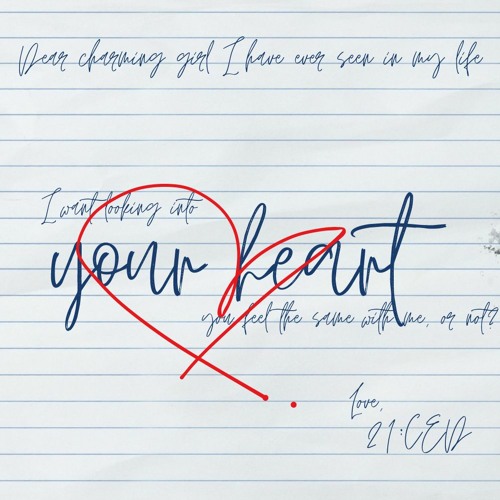 Dear charming girl I have ever seen in my life
I want looking into
your heart
you feel the same with me, or not?
Love,
21:CED